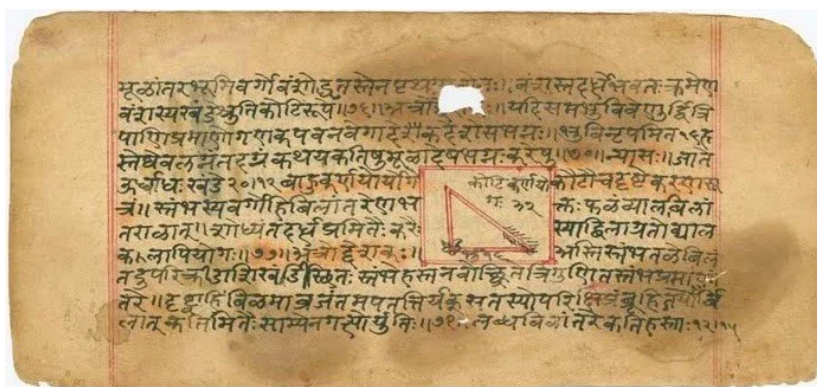 मूळांतरभूमिवर्गो वंशोद्धृतस्तेन पृथ वंशस्तदर्धेभवतः क्रमेण
वंशस्यखंडेश्रुतिकोटिरूपे॥७६॥ यदिसमभुविवेणुर्द्वित्रि
पाणिप्रमाणोगणकपवनवेगादेकदेशेसभग्नः॥ भुविनृपमित१६ह
स्तेष्वेवलग्नंतदग्रंकथयकतिषुमूळादेषभग्नःकरेषु॥७७॥ न्यासः॥ जाते
ऊर्ध्वाधः खंडे २०।१२ बाहुकर्णयोर्योगे कोटिकर्णयो कोटौचदृष्टेकरणसू
त्रं॥ स्तंभस्यवर्गोहिबिलांतरेणभ गः ३२ क्तः फळंव्यालबिलां
तराळात्॥ शोध्यंतदर्धप्रमितैः करैः स्याद्बिलाग्रतोव्याल
कलापियोगः॥७७॥ अत्रोद्देशकः॥ १६ अस्तिस्तंभतळेबिलं
तदुपरिक्रीडाशिखंडी स्तंभहस्तनवोच्छ्रितत्रिगुणितस्तंभप्रमाणां
तरे॥ दृष्ट्वाहिंबिळमाव्रजंतमपतत्तिर्यक्सतस्योपरिक्षिप्रंब्रूहितयोर्बि
लात्कतिमितैः साम्येनगत्योर्युतिः॥ लब्धबिळांतरेकतिहस्ताः १२।१५